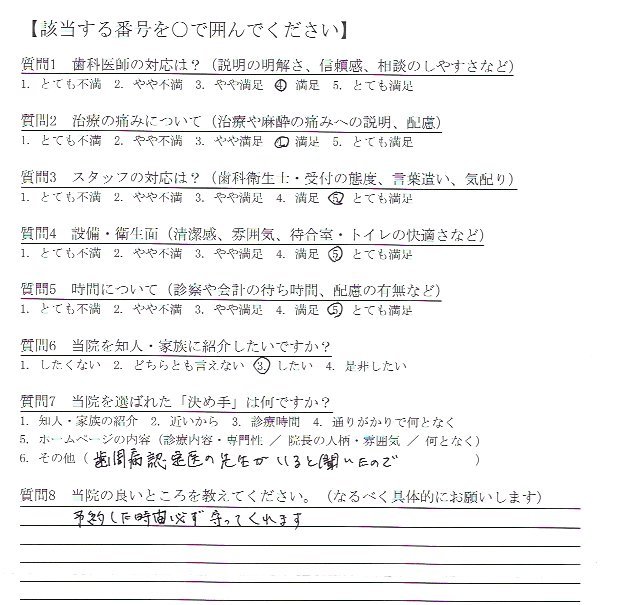 【該当する番号を〇で囲んでください】
質問1　歯科医師の対応は？（説明の明解さ、信頼感、相談のしやすさなど）
1. とても不満　2. やや不満　3. やや満足　④ 満足　5. とても満足
質問2　治療の痛みについて（治療や麻酔の痛みへの説明、配慮）
1. とても不満　2. やや不満　3. やや満足　④ 満足　5. とても満足
質問3　スタッフの対応は？（歯科衛生士・受付の態度、言葉遣い、気配り）
1. とても不満　2. やや不満　3. やや満足　4. 満足　⑤ とても満足
質問4　設備・衛生面（清潔感、雰囲気、待合室・トイレの快適さなど）
1. とても不満　2. やや不満　3. やや満足　4. 満足　⑤ とても満足
質問5　時間について（診察や会計の待ち時間、配慮の有無など）
1. とても不満　2. やや不満　3. やや満足　4. 満足　⑤ とても満足
質問6　当院を知人・家族に紹介したいですか？
1. したくない　2. どちらとも言えない　③ したい　4. 是非したい
質問7　当院を選ばれた「決め手」は何ですか？
1. 知人・家族の紹介　2. 近いから　3. 診療時間　4. 通りがかりで何となく
5. ホームページの内容（診療内容・専門性 ／ 院長の人柄・雰囲気 ／ 何となく）
6. その他（ 歯周病認定医の先生がいると聞いたので ）
質問8　当院の良いところを教えてください。（なるべく具体的にお願いします）
予約した時間必ず守ってくれます